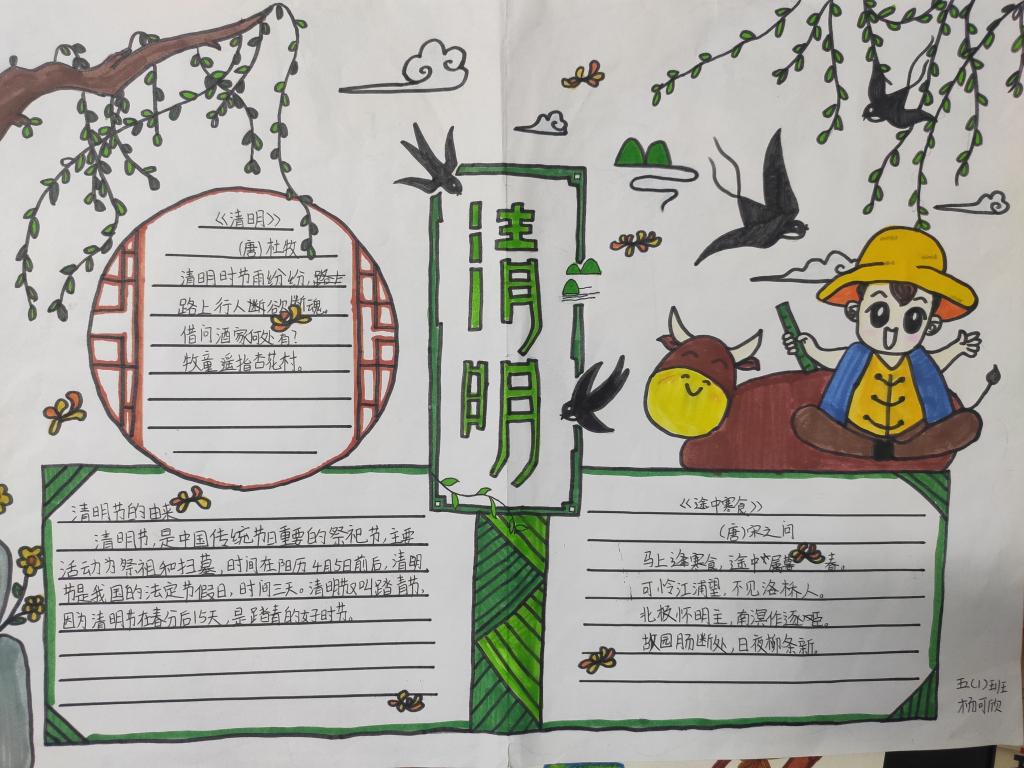 《清明》
(唐)杜牧
清明时节雨纷纷,路上
路上行人断欲断魂。
借问酒家何处有?
牧童遥指杏花村。
清明
清明节的由来
清明节,是中国传统节日重要的祭祀节,主要
活动为祭祖和扫墓,时间在阳历4月5日前后,清明
节是我国的法定节假日,时间三天。清明节又叫踏青节,
因为清明节在春分后15天,是踏青的好时节。
《途中寒食》
(唐)宋之问
马上逢寒食,途中属暮春。
可怜江浦望,不见洛桥人。
北极怀明主,南溟作逐臣。
故园肠断处,日夜柳条新。
五(1)班
杨可欣